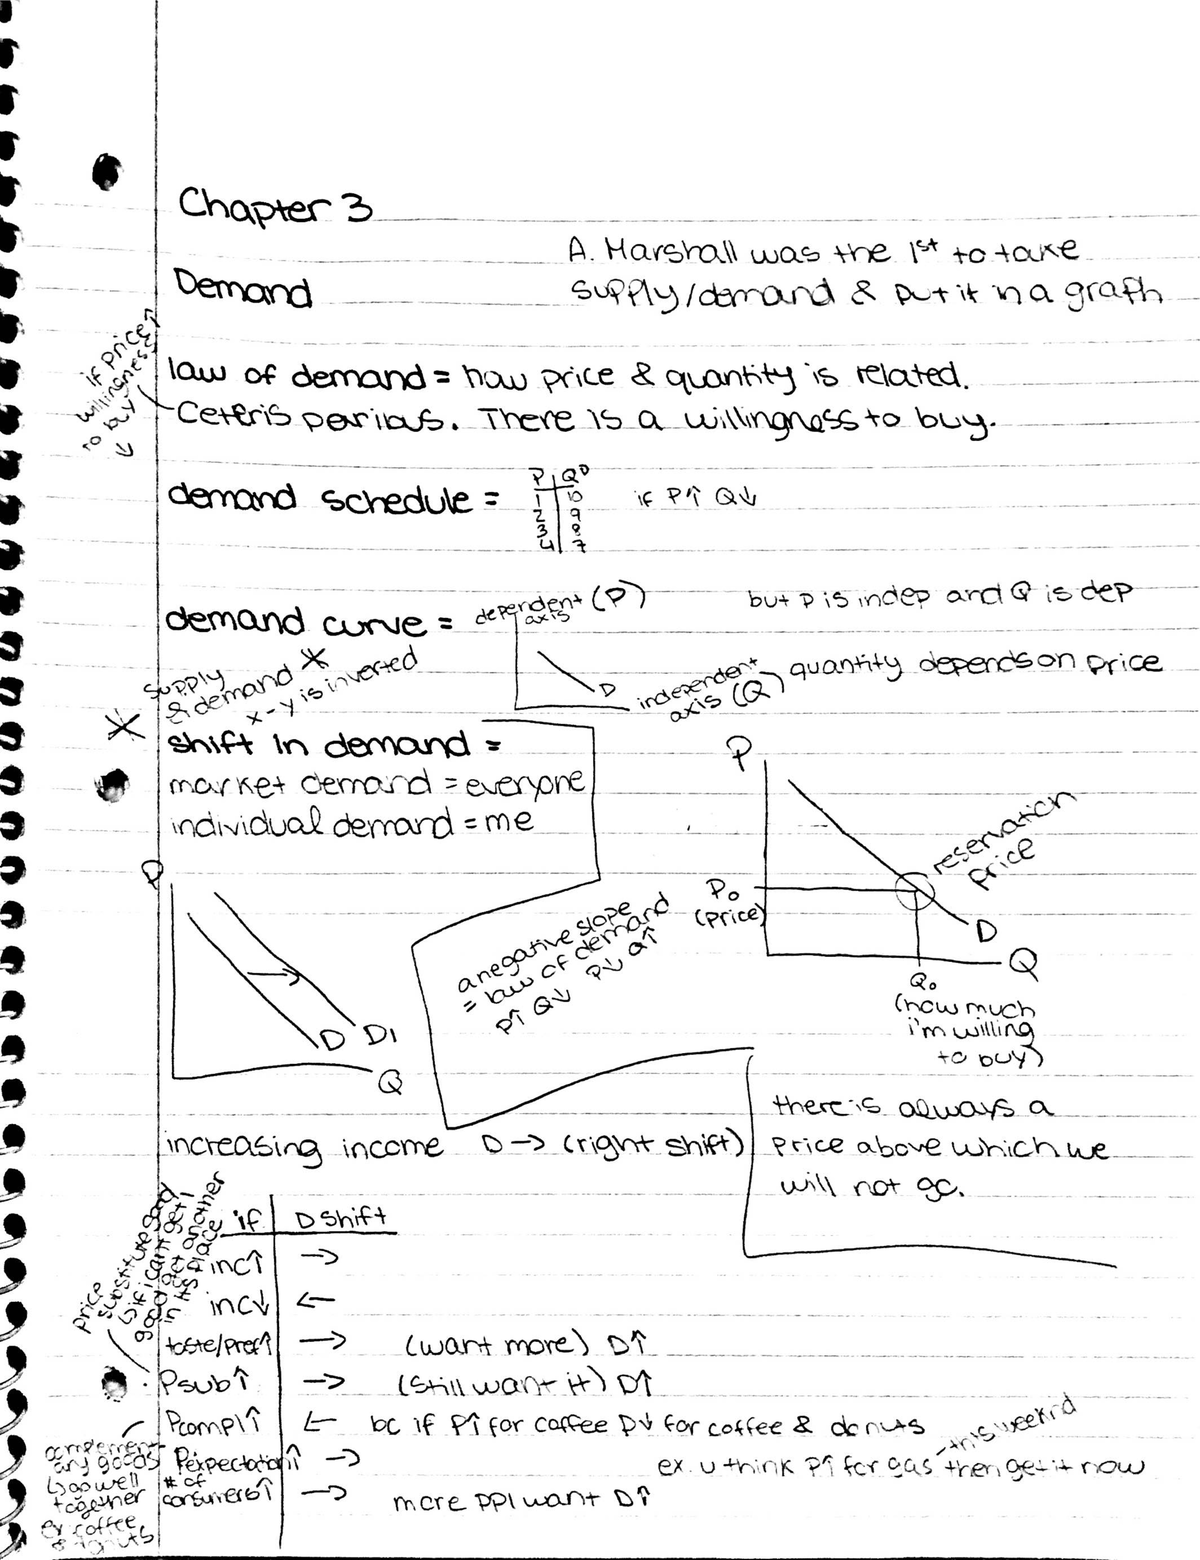 Chapter 3
A. Marshall was the 1st to take
supply/demand & put it in a graph
Demand
if price↑
willingness
to buy
↓
law of demand = how price & quantity is related.
Ceteris paribus. There is a willingness to buy.
demand schedule =
P | QD
1 | 10
2 | 9
3 | 8
4 | 7
if P↑ Q↓
demand curve =
dependent (P)
axis
D
independent
axis (Q)
but P is indep and Q is dep
quantity depends on price
supply
& demand *
x-y is inverted
* shift in demand =
market demand = everyone
individual demand = me
P
D D1
Q
a negative slope
= law of demand
P↑ Q↓ P↓ Q↑
P
reservation
price
P₀
(price)
D
Q
Q₀
(how much
i'm willing
to buy)
there is always a
price above which we
will not go.
increasing income D→ (right shift)
if | D shift
inc↑ | →
inc↓ | ←
taste/pref↑ | → (want more) D↑
Psub↑ | → (still want it) D↑
Pcompl↑ | ← bc if P↑ for coffee D↓ for coffee & donuts
Pexpectation↑ | → ex. u think P↑ for gas this weekend then get it now
# of
consumers↑ | → more ppl want D↑
price
substitute good
↳ if i cant get 1
good get another
in its place
complement
ary goods
↳ go well
together
ex coffee
& donuts